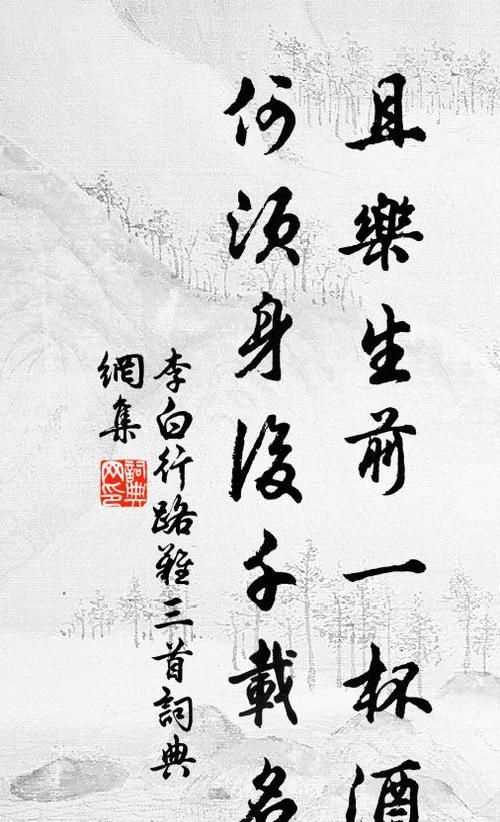 且樂生前一杯酒
何須身後千載名
李白行路難三首詞典
網集
詞典網印